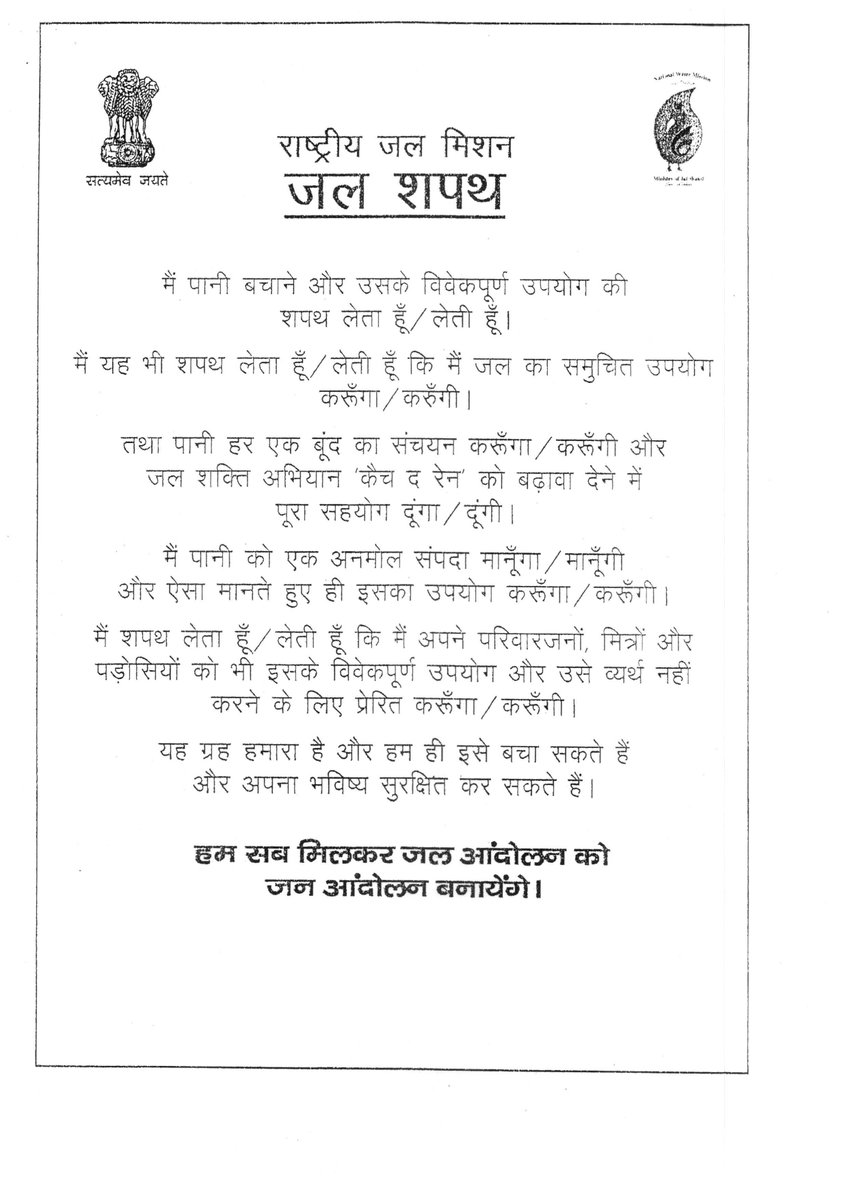 सत्यमेव जयते
National Water Mission
राष्ट्रीय जल मिशन
जल शपथ
Ministry of Jal Shakti
मैं पानी बचाने और उसके विवेकपूर्ण उपयोग की
शपथ लेता हूँ/लेती हूँ।
मैं यह भी शपथ लेता हूँ/लेती हूँ कि मैं जल का समुचित उपयोग
करूँगा/करुँगी।
तथा पानी हर एक बूंद का संचयन करूँगा/करूँगी और
जल शक्ति अभियान 'कैच द रेन' को बढ़ावा देने में
पूरा सहयोग दूंगा/दूंगी।
मैं पानी को एक अनमोल संपदा मानूँगा/मानूँगी
और ऐसा मानते हुए ही इसका उपयोग करूँगा/करूँगी।
मैं शपथ लेता हूँ/लेती हूँ कि मैं अपने परिवारजनों, मित्रों और
पड़ोसियों को भी इसके विवेकपूर्ण उपयोग और उसे व्यर्थ नहीं
करने के लिए प्रेरित करूँगा/करूँगी।
यह ग्रह हमारा है और हम ही इसे बचा सकते हैं
और अपना भविष्य सुरक्षित कर सकते हैं।
हम सब मिलकर जल आंदोलन को
जन आंदोलन बनायेंगे।